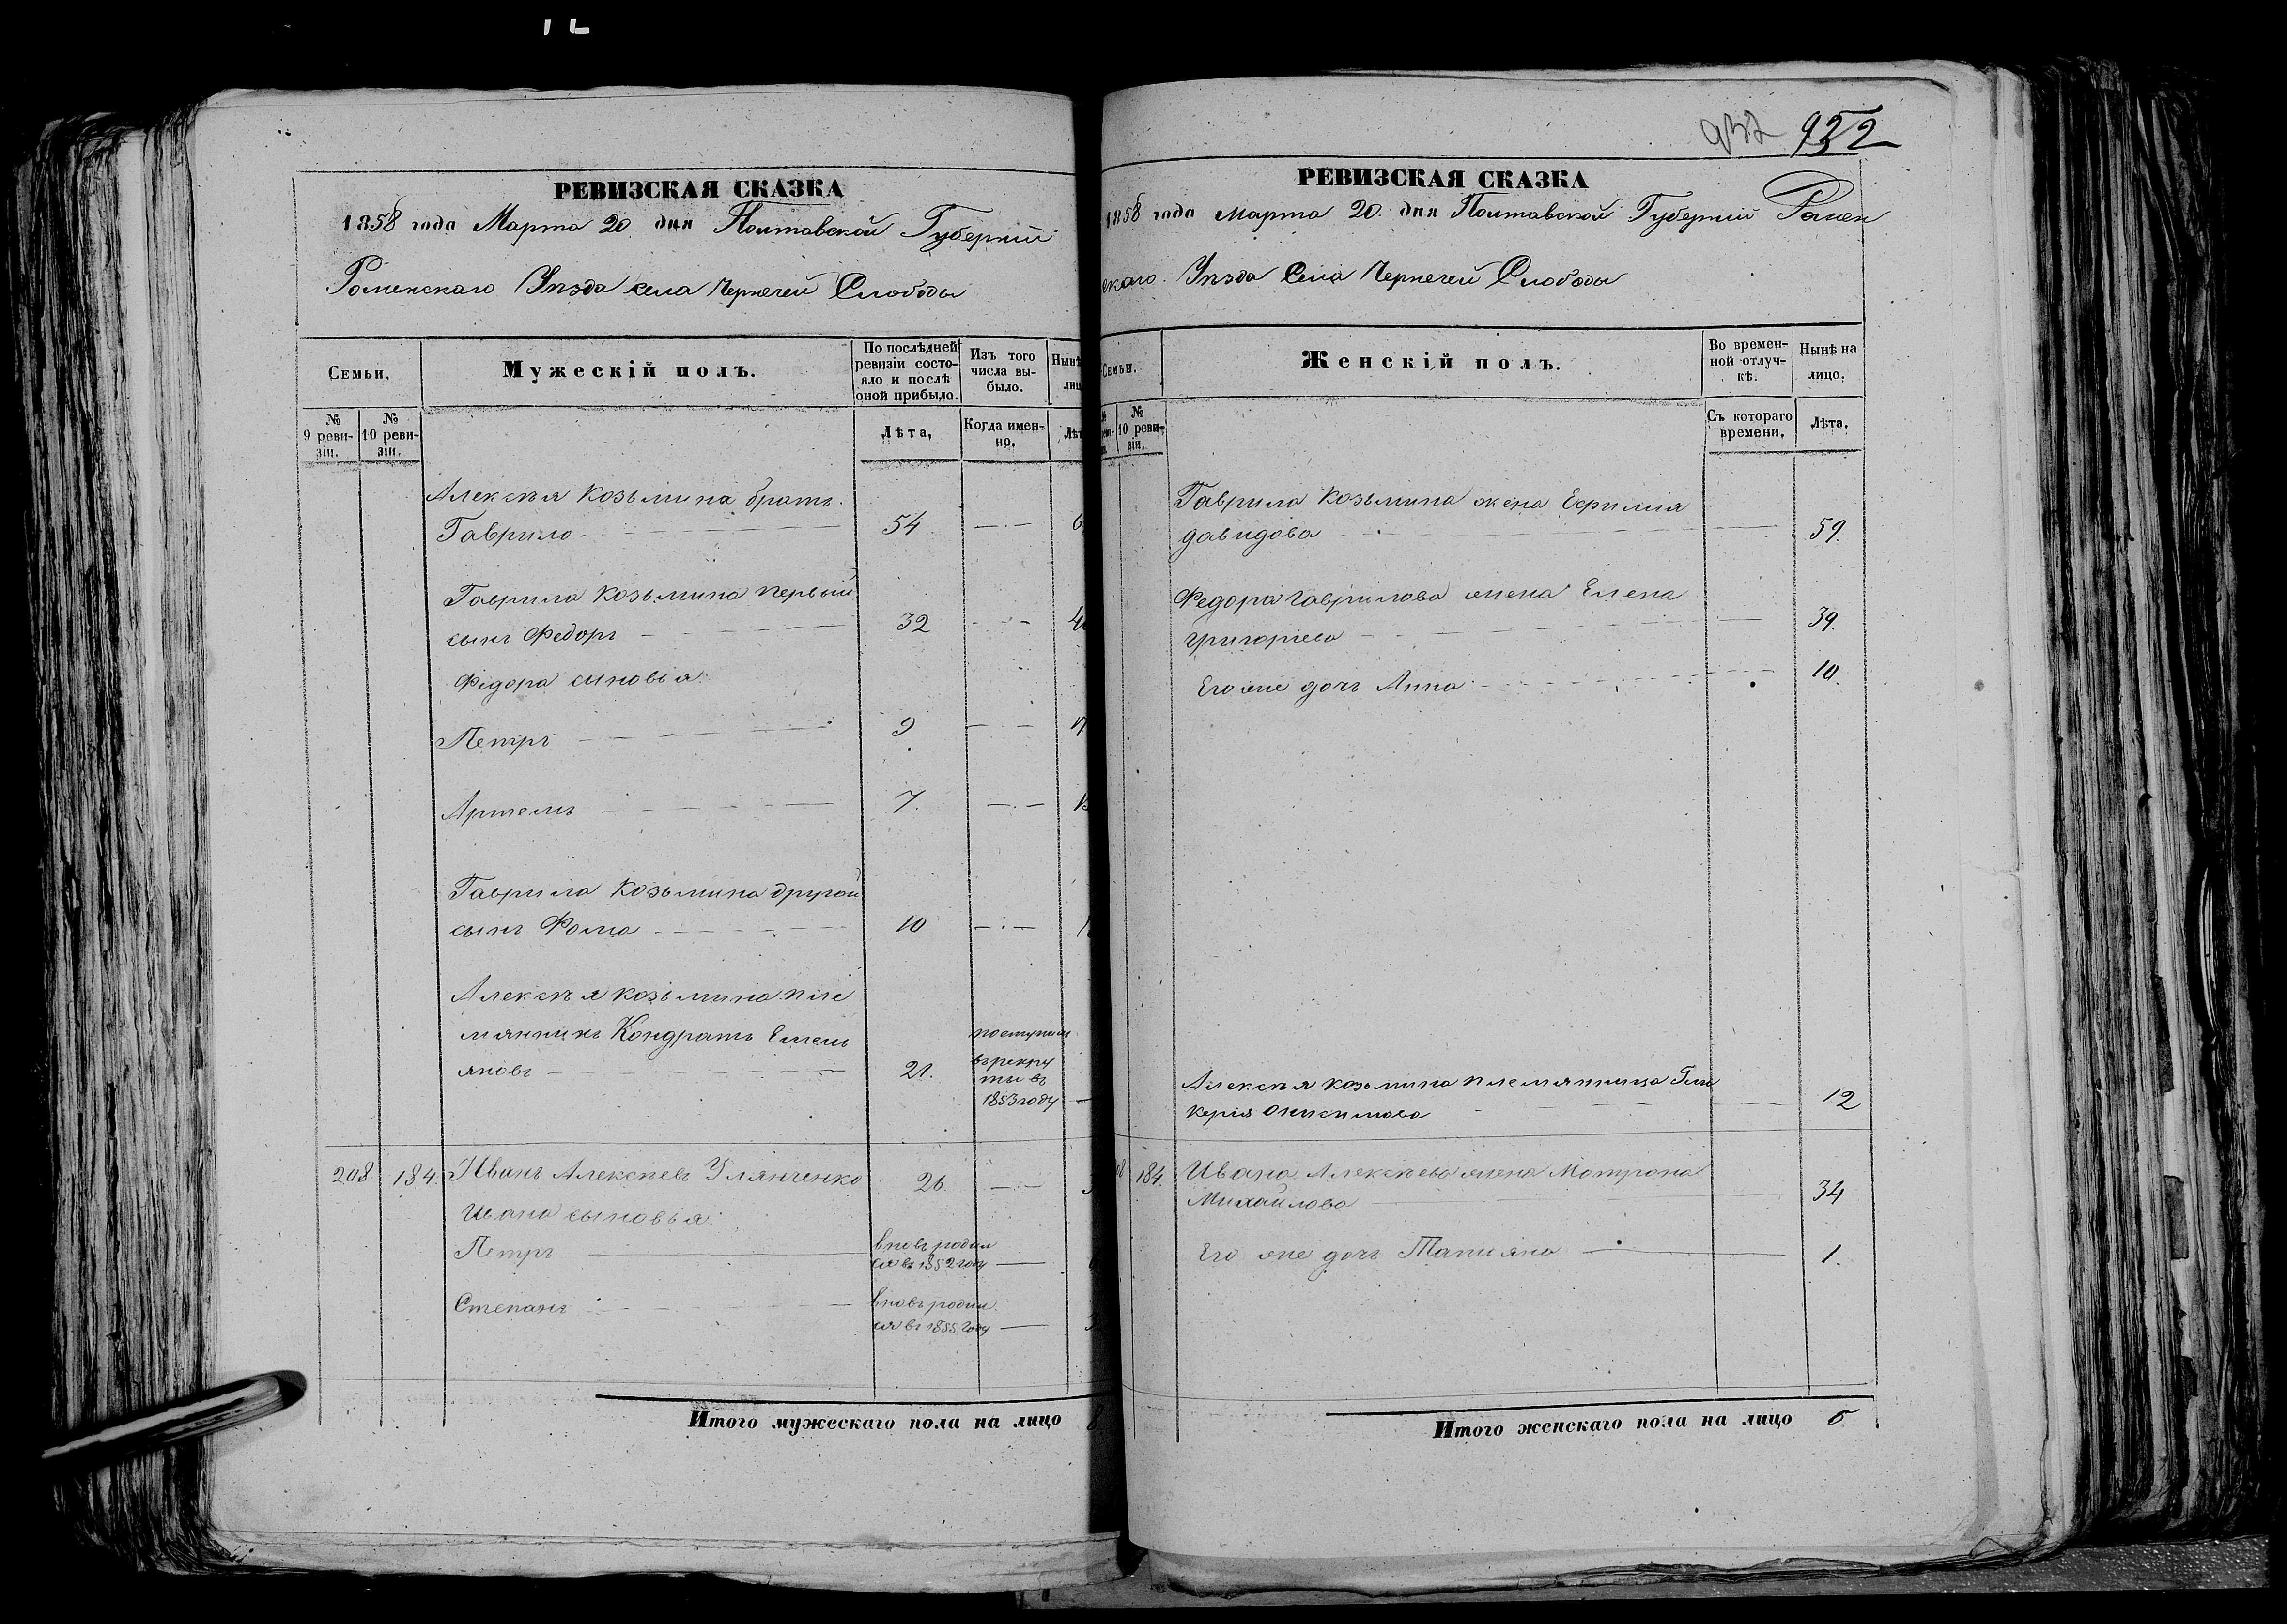 РЕВИЗСКАЯ СКАЗКА
1858 года Марта 20 дня Полтавской Губерніи
Роменскаго Уѣзда села Чернечей Слободы
Семьи.
Мужескій полъ.
По послѣдней ревизіи состояло и послѣ оной прибыло.
Изъ того числа выбыло.
Нынѣ
лиц
№ 9 ревизіи.
№ 10 ревизіи.
Лѣта,
Когда именно.
Лѣт
Алексѣя Козьмина братъ
Гаврило 54
Гаврила Козьмина первый
сынъ Федоръ 32
Федора сыновья:
Петръ 9
Артемъ 7
Гаврила Козьмина другой
сынъ Фома 10
Алексѣя Козьмина пле
мянникъ Кондратъ Емель
яновъ 21.
поступилъ
въ рекру
ты въ
1853 году
208 184. Иванъ Алексѣевъ Улянченко 26
Ивана сыновья:
Петръ вновь родил
ся въ 1852 году
Степанъ вновь родил
ся въ 1855 году
Итого мужескаго пола на лицо 8
932 952
РЕВИЗСКАЯ СКАЗКА
1858 года Марта 20. дня Полтавской Губерніи Ромен
скаго Уѣзда Села Чернечей Слободы
Семьи.
Женскій полъ.
Во временной отлучкѣ.
Нынѣ на лицо.
№ 10 ревизіи.
Съ котораго времени,
Лѣта,
Гаврила Козьмина жена Ефимия
давидова 59.
Федора гаврилова жена Елена
григорьева 39.
Его же дочь Анна 10.
Алексѣя козьмина племянница Гли
керія Онисимова 12
184. Ивана Алексѣева жена Мотрона
Михайлова 34
Его же дочь Татияна 1.
Итого женскаго пола на лицо 6